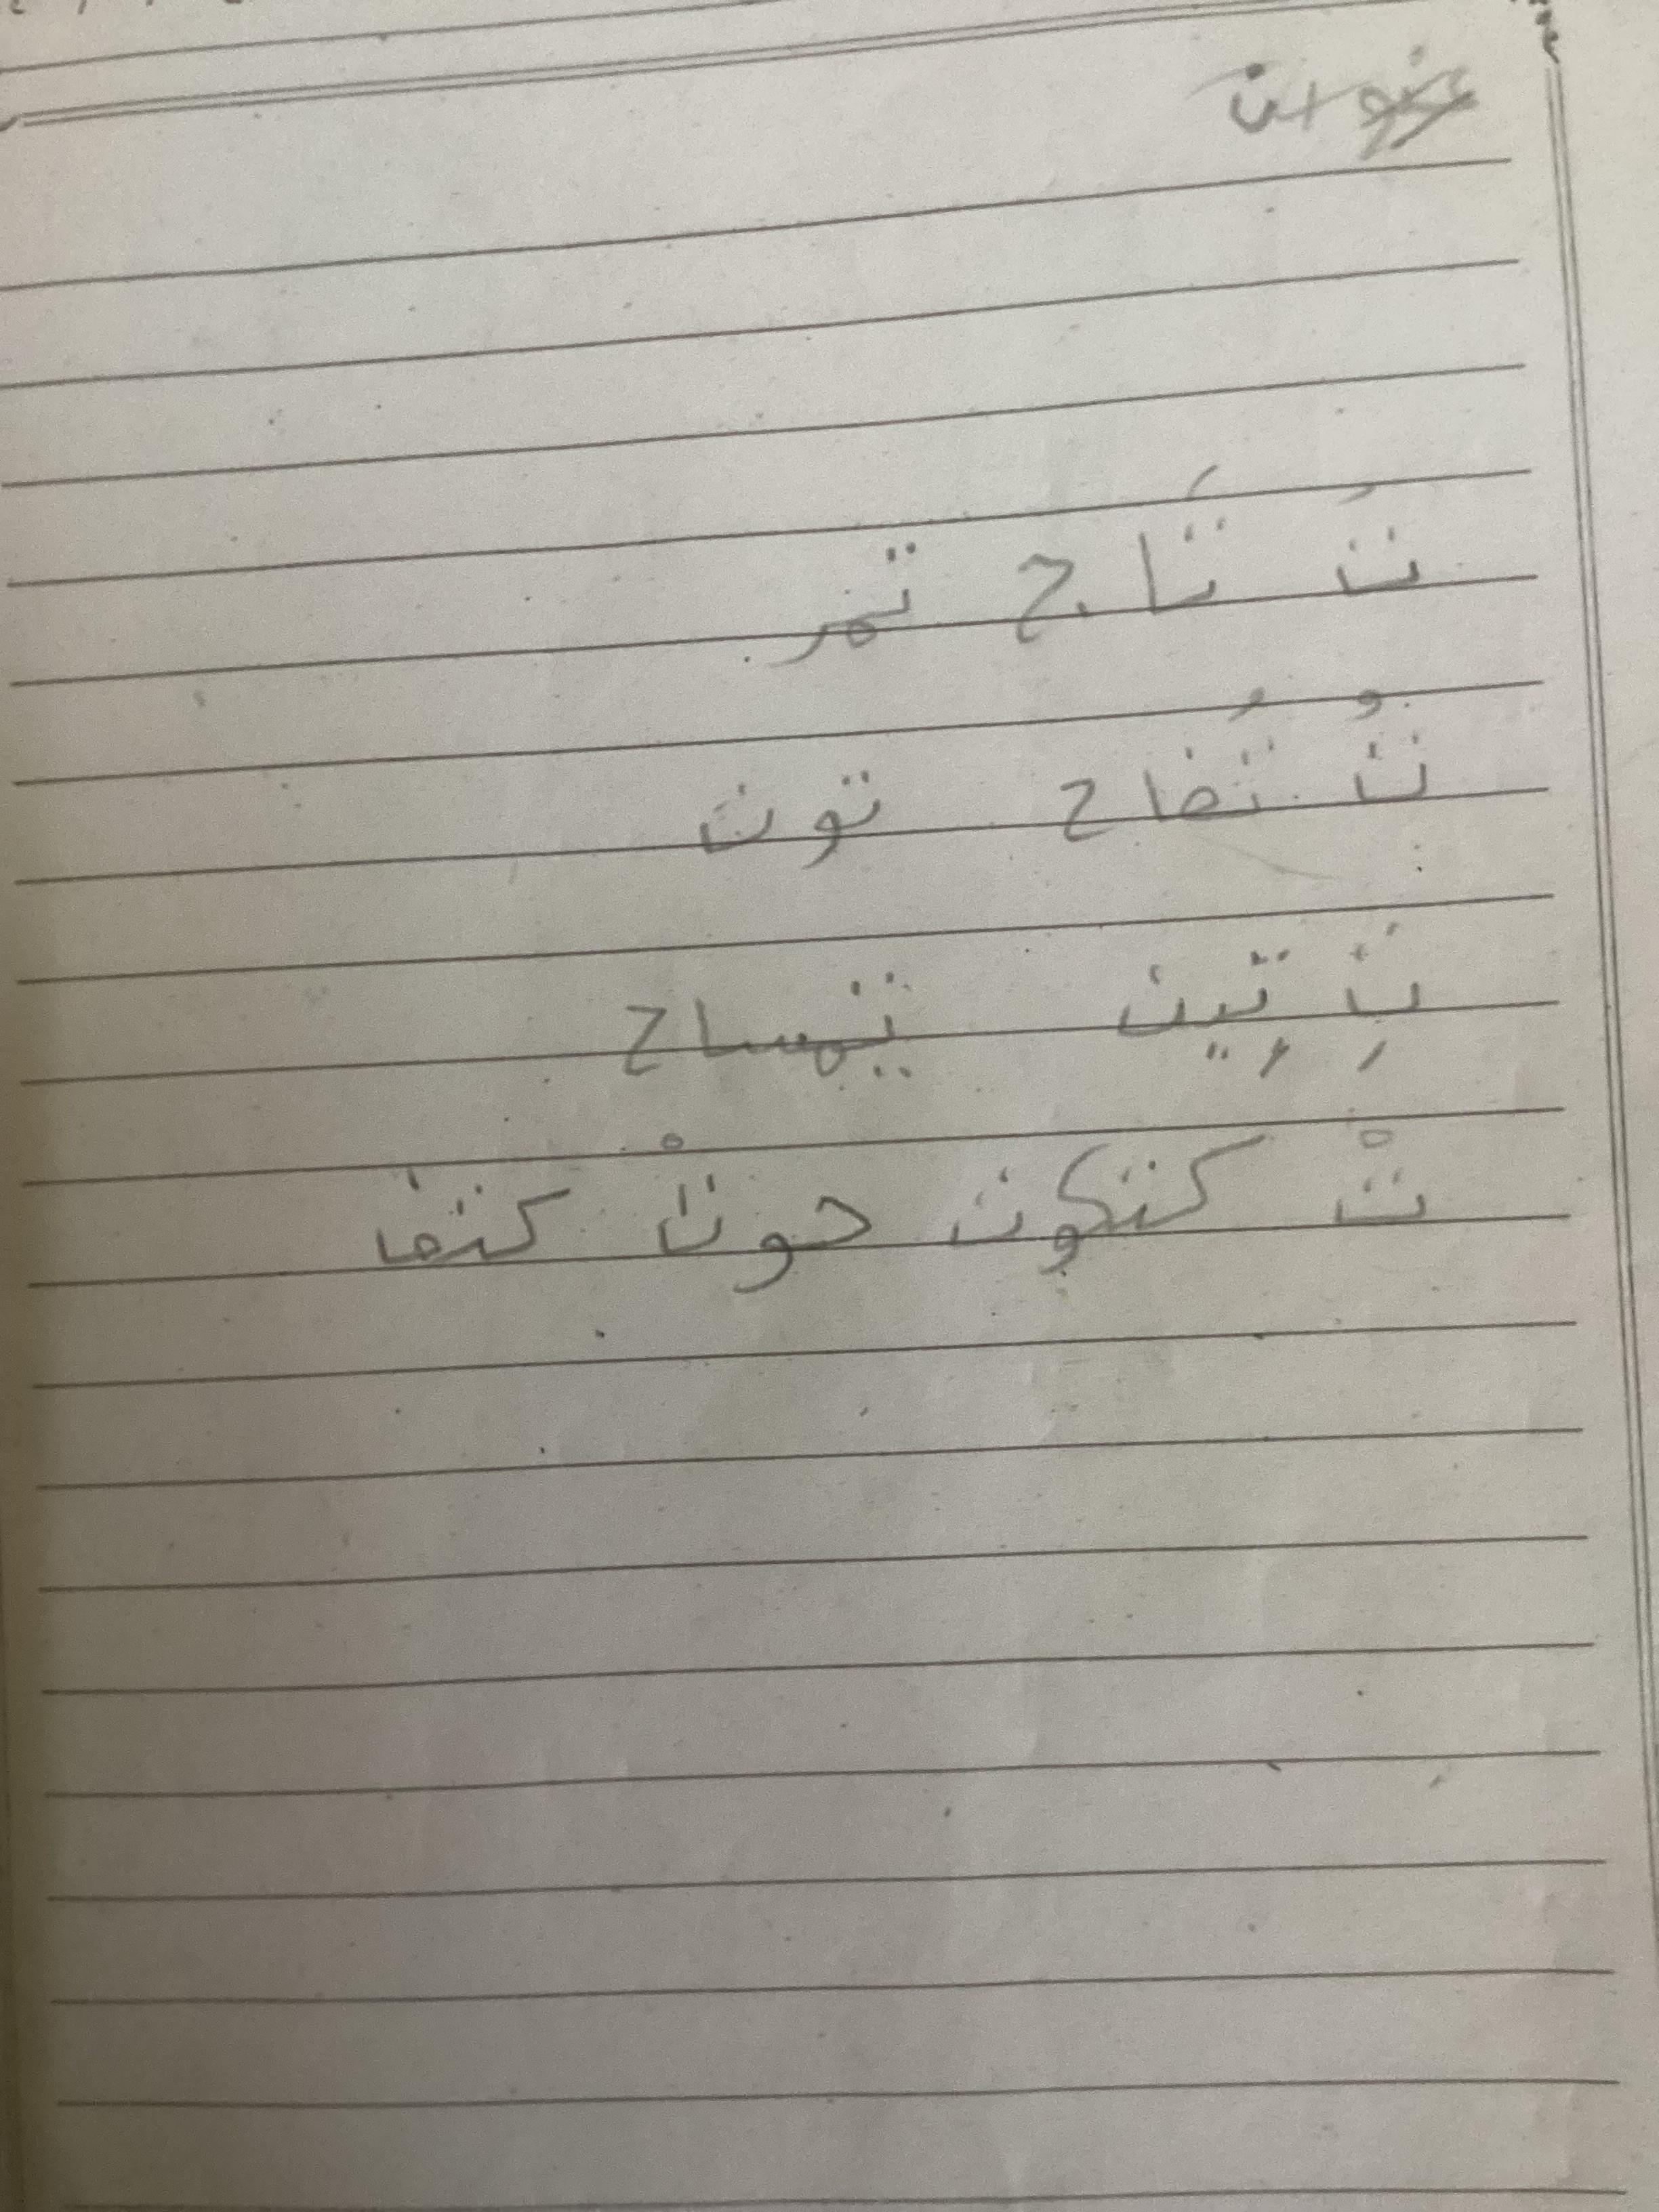 عنوان
تَ تَاج تمر
تُ تُفاح توت
تِ تِين تمساح
تْ كتكوت حوتْ كتف